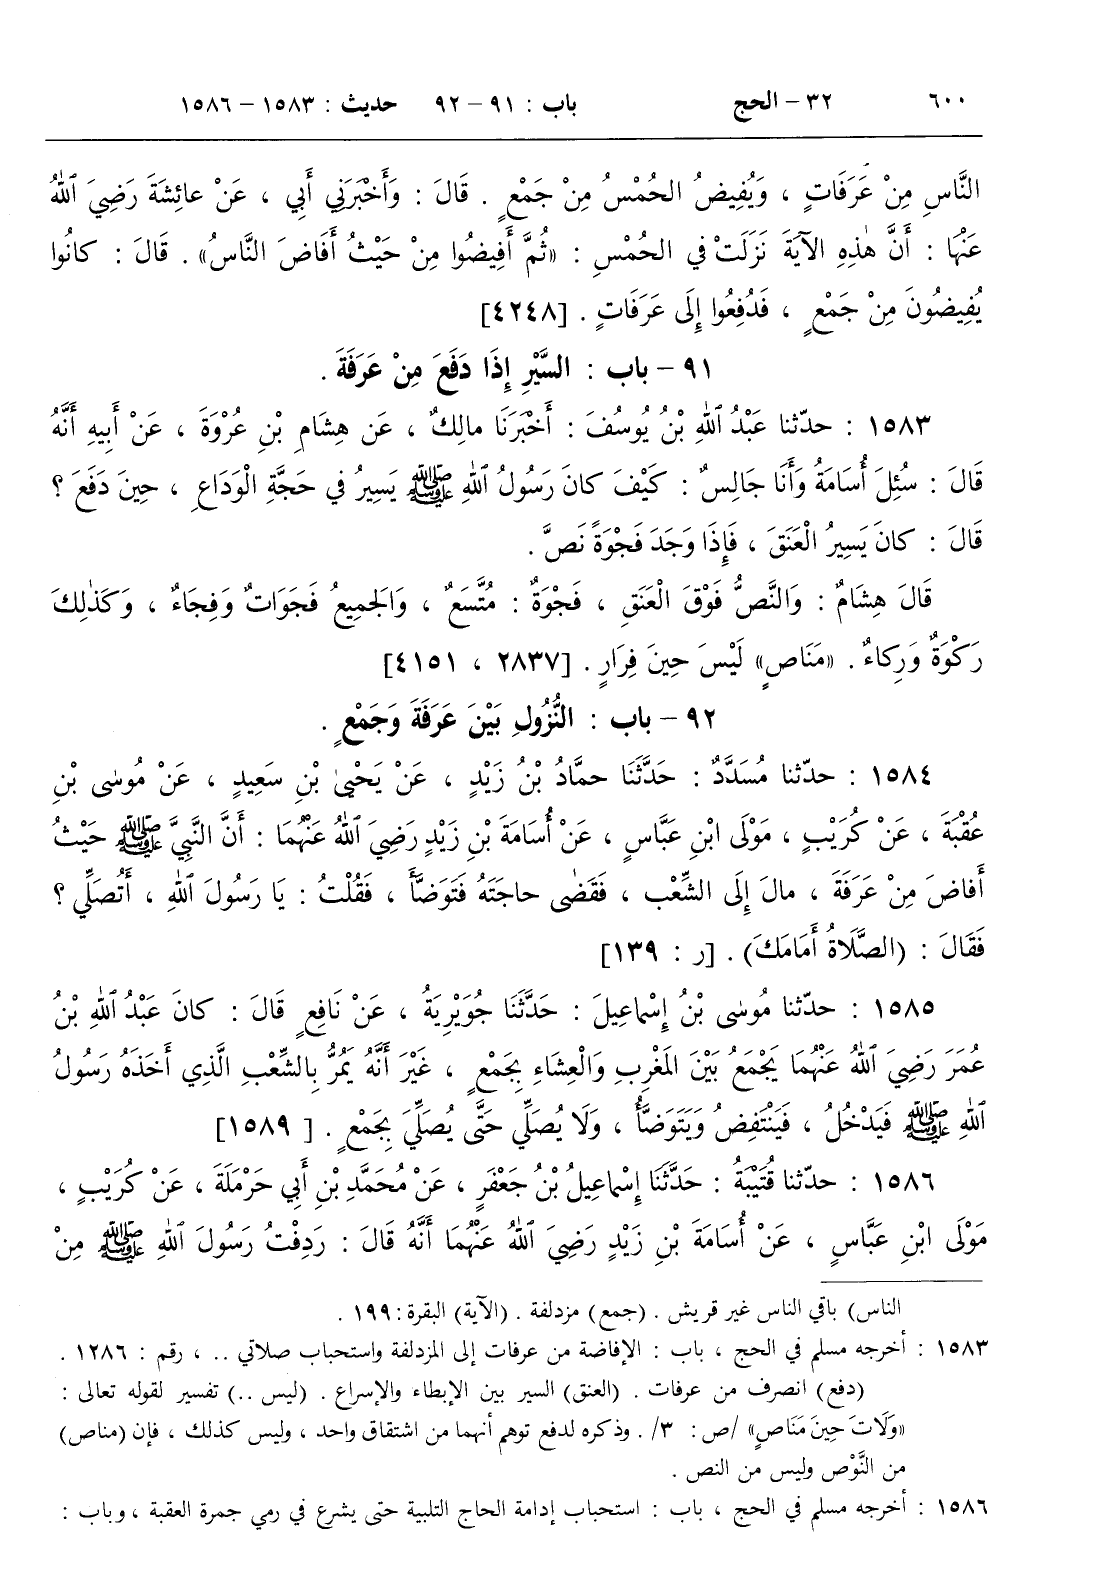 ٦٠٠ ٣٢ – الحج باب : ٩١ – ٩٢ حديث : ١٥٨٣ – ١٥٨٦
النَّاسِ مِنْ عَرَفَاتٍ ، وَيُفِيضُ الحُمْسُ مِنْ جَمْعٍ . قَالَ : وَأَخْبَرَنِي أَبِي ، عَنْ عائِشَةَ رَضِيَ ٱللهُ
عَنْهَا : أَنَّ هٰذِهِ الآيَةَ نَزَلَتْ في الحُمْسِ : «ثُمَّ أَفِيضُوا مِنْ حَيْثُ أَفَاضَ النَّاسُ» . قَالَ : كانُوا
يُفِيضُونَ مِنْ جَمْعٍ ، فَدُفِعُوا إِلَى عَرَفَاتٍ . [٤٢٤٨]
٩١ – باب : السَّيْرِ إِذَا دَفَعَ مِنْ عَرَفَةَ .
١٥٨٣ : حدّثنا عَبْدُ ٱللهِ بْنُ يُوسُفَ : أَخْبَرَنَا مالِكٌ ، عَن هِشَامِ بْنِ عُرْوَةَ ، عَنْ أَبِيهِ أَنَّهُ
قَالَ : سُئِلَ أُسَامَةُ وَأَنَا جَالِسٌ : كَيْفَ كانَ رَسُولُ ٱللهِ ﷺ يَسِيرُ في حَجَّةِ الْوَدَاعِ ، حِينَ دَفَعَ ؟
قَالَ : كانَ يَسِيرُ الْعَنَقَ ، فَإِذَا وَجَدَ فَجْوَةً نَصَّ .
قَالَ هِشَامٌ : وَالنَّصُّ فَوْقَ الْعَنَقِ ، فَجْوَةٌ : مُتَّسَعٌ ، وَالجَمِيعُ فَجَوَاتٌ وَفِجَاءٌ ، وَكَذٰلِكَ
رَكْوَةٌ وَرِكاءٌ . «مَنَاصٍ» لَيْسَ حِينَ فِرَارٍ . [٢٨٣٧ ، ٤١٥١]
٩٢ – باب : النُّزُولِ بَيْنَ عَرَفَةَ وَجَمْعٍ .
١٥٨٤ : حدّثنا مُسَدَّدٌ : حَدَّثَنَا حمَّادُ بْنُ زَيْدٍ ، عَنْ يَحْيىٰ بْنِ سَعِيدٍ ، عَنْ مُوسٰى بْنِ
عُقْبَةَ ، عَنْ كُرَيْبٍ ، مَوْلَى ابْنِ عَبَّاسٍ ، عَنْ أُسَامَةَ بْنِ زَيْدٍ رَضِيَ ٱللهُ عَنْهُمَا : أَنَّ النَّبِيَّ ﷺ حَيْثُ
أَفاضَ مِنْ عَرَفَةَ ، مالَ إِلَى الشِّعْبِ ، فَقَضٰى حاجَتَهُ فَتَوَضَّأَ ، فَقُلْتُ : يَا رَسُولَ ٱللهِ ، أَتُصَلِّي ؟
فَقَالَ : (الصَّلَاةُ أَمَامَكَ) . [ر : ١٣٩]
١٥٨٥ : حدّثنا مُوسٰى بْنُ إِسْماعِيلَ : حَدَّثَنَا جُوَيْرِيَةُ ، عَنْ نَافِعٍ قَالَ : كانَ عَبْدُ ٱللهِ بْنُ
عُمَرَ رَضِيَ ٱللهُ عَنْهُمَا يَجْمَعُ بَيْنَ المَغْرِبِ وَالْعِشَاءِ بِجَمْعٍ ، غَيْرَ أَنَّهُ يَمُرُّ بِالشِّعْبِ الَّذِي أَخَذَهُ رَسُولُ
ٱللهِ ﷺ فَيَدْخُلُ ، فَيَنْتَفِضُ وَيَتَوَضَّأُ ، وَلَا يُصَلِّي حَتَّى يُصَلِّيَ بِجَمْعٍ . [ ١٥٨٩]
١٥٨٦ : حدّثنا قُتَيْبَةُ : حَدَّثَنَا إِسْماعِيلُ بْنُ جَعْفَرٍ ، عَنْ مُحَمَّدِ بْنِ أَبِي حَرْمَلَةَ ، عَنْ كُرَيْبٍ ،
مَوْلَى ابْنِ عَبَّاسٍ ، عَنْ أُسَامَةَ بْنِ زَيْدٍ رَضِيَ ٱللهُ عَنْهُمَا أَنَّهُ قَالَ : رَدِفْتُ رَسُولَ ٱللهِ ﷺ مِنْ
الناس) باقي الناس غير قريش . (جمع) مزدلفة . (الآية) البقرة : ١٩٩ .
١٥٨٣ : أخرجه مسلم في الحج ، باب : الإفاضة من عرفات إلى المزدلفة واستحباب صلاتي .. ، رقم : ١٢٨٦ .
(دفع) انصرف من عرفات . (العنق) السير بين الإبطاء والإسراع . (ليس ..) تفسير لقوله تعالى :
«وَلَاتَ حِينَ مَنَاصٍ» /ص : ٣/ . وذكره لدفع توهم أنهما من اشتقاق واحد ، وليس كذلك ، فإن (مناص)
من النَّوْص وليس من النص .
١٥٨٦ : أخرجه مسلم في الحج ، باب : استحباب إدامة الحاج التلبية حتى يشرع في رمي جمرة العقبة ، وباب :